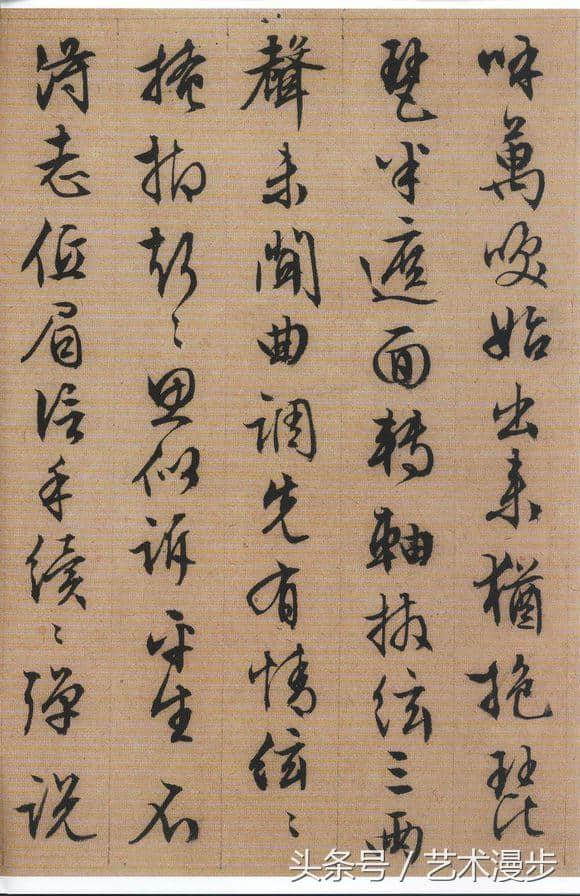 呼萬喚始出来猶抱琵
琶半遮面轉軸撥絃三兩
聲未聞曲調先有情絃〻
掩抑声〻思似訴平生不
得志低眉信手續〻彈説
头条号 / 艺术漫步